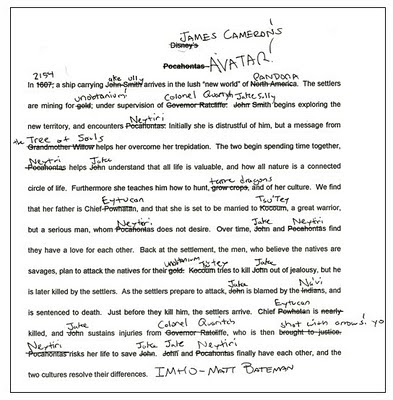 JAMES CAMERON'S
Disney's
Pocahontas AVATAR!
2154 Jake Sully PANDORA
In 1607, a ship carrying John Smith arrives in the lush "new world" of North America. The settlers
unobtanium Colonel Quaritch Jake Sully
are mining for gold, under supervision of Governor Ratcliffe. John Smith begins exploring the
Neytiri
new territory, and encounters Pocahontas. Initially she is distrustful of him, but a message from
the Tree of Souls
Grandmother Willow helps her overcome her trepidation. The two begin spending time together,
Neytiri Jake
Pocahontas helps John understand that all life is valuable, and how all nature is a connected
tame dragons
circle of life. Furthermore she teaches him how to hunt, grow crops, and of her culture. We find
Eytucan Tsu'Tey
that her father is Chief Powhatan, and that she is set to be married to Kocoum, a great warrior,
Neytiri Jake Neytiri
but a serious man, whom Pocahontas does not desire. Over time, John and Pocahontas find
they have a love for each other. Back at the settlement, the men, who believe the natives are
unobtanium Tsu'tey Jake
savages, plan to attack the natives for their gold. Kocoum tries to kill John out of jealousy, but he
Jake Na'vi
is later killed by the settlers. As the settlers prepare to attack, John is blamed by the Indians, and
Eytucan
is sentenced to death. Just before they kill him, the settlers arrive. Chief Powhatan is nearly
Jake Colonel Quaritch shot with arrows! yo
killed, and John sustains injuries from Governor Ratcliffe, who is then brought to justice.
Neytiri Jake Jake Neytiri
Pocahontas risks her life to save John. John and Pocahontas finally have each other, and the
two cultures resolve their differences. IMHO-MATT BATEMAN